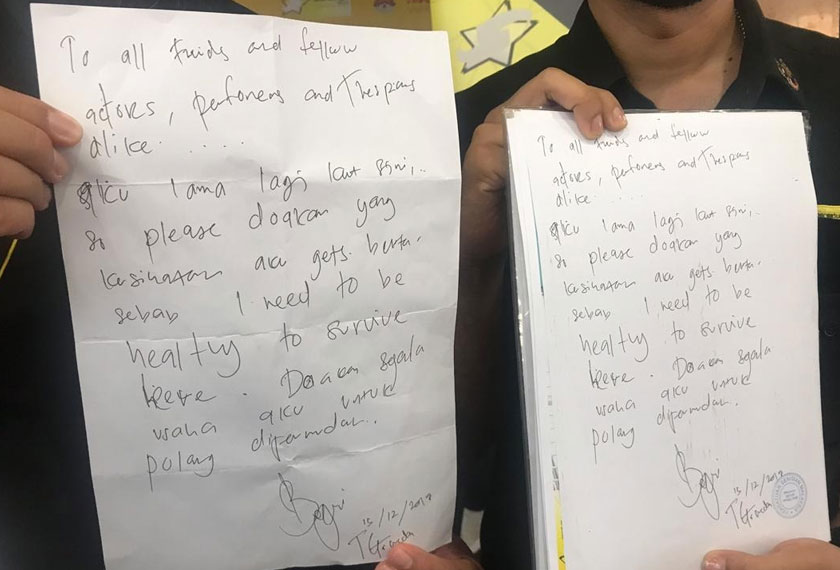 To all friends and fellow
actores, performers and Thespians
alike. . . . .
Aku lama lagi kat sini,..
so please doakan yang
kesihatan aku gets. better.
sebab I need to be
healthy to survive
here. Doakan segala
usaha aku untuk
pulang dipermudah.
13/12/2019
To all friends and fellow
actores, performers and Thespians
alike. . . . .
Aku lama lagi kat sini,..
so please doakan yang
kesihatan aku gets. better.
sebab I need to be
healthy to survive
here. Doakan segala
usaha aku untuk
pulang dipermudah.
13/12/2019